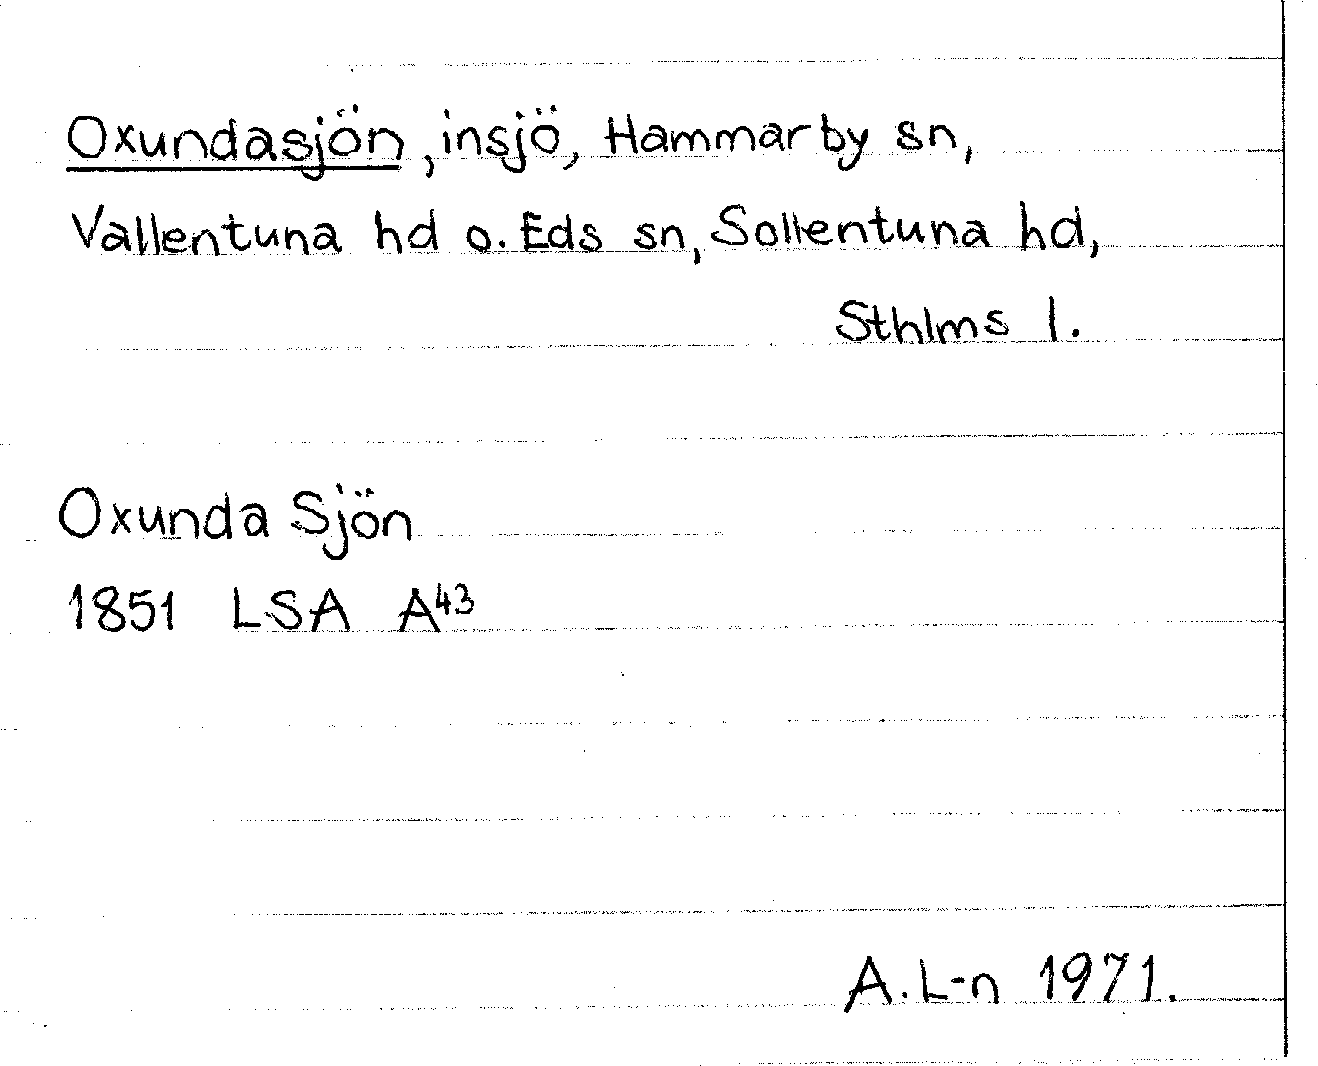 Oxundasjön, insjö, Hammarby sn,
Vallentuna hd o. Eds sn, Sollentuna hd,
Sthlms l.
Oxunda Sjön
1851 LSA A⁴³
A. L-n 1971.